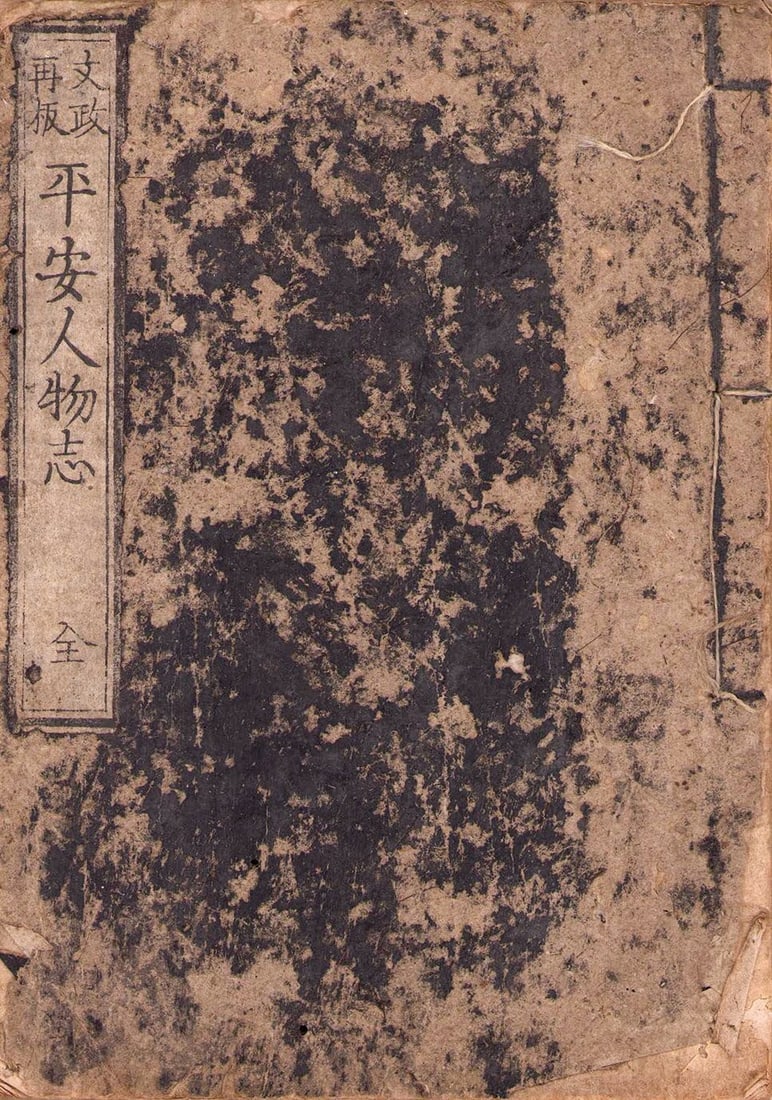 文政
再板
平安人物志
全